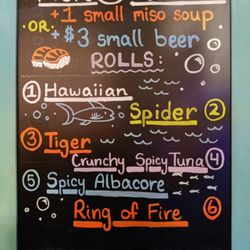 +1 small miso soup
OR
+$3 small beer
ROLLS:
1 Hawaiian
Spider 2
3 Tiger
Crunchy Spicy Tuna 4
5 Spicy Albacore
Ring of Fire 6